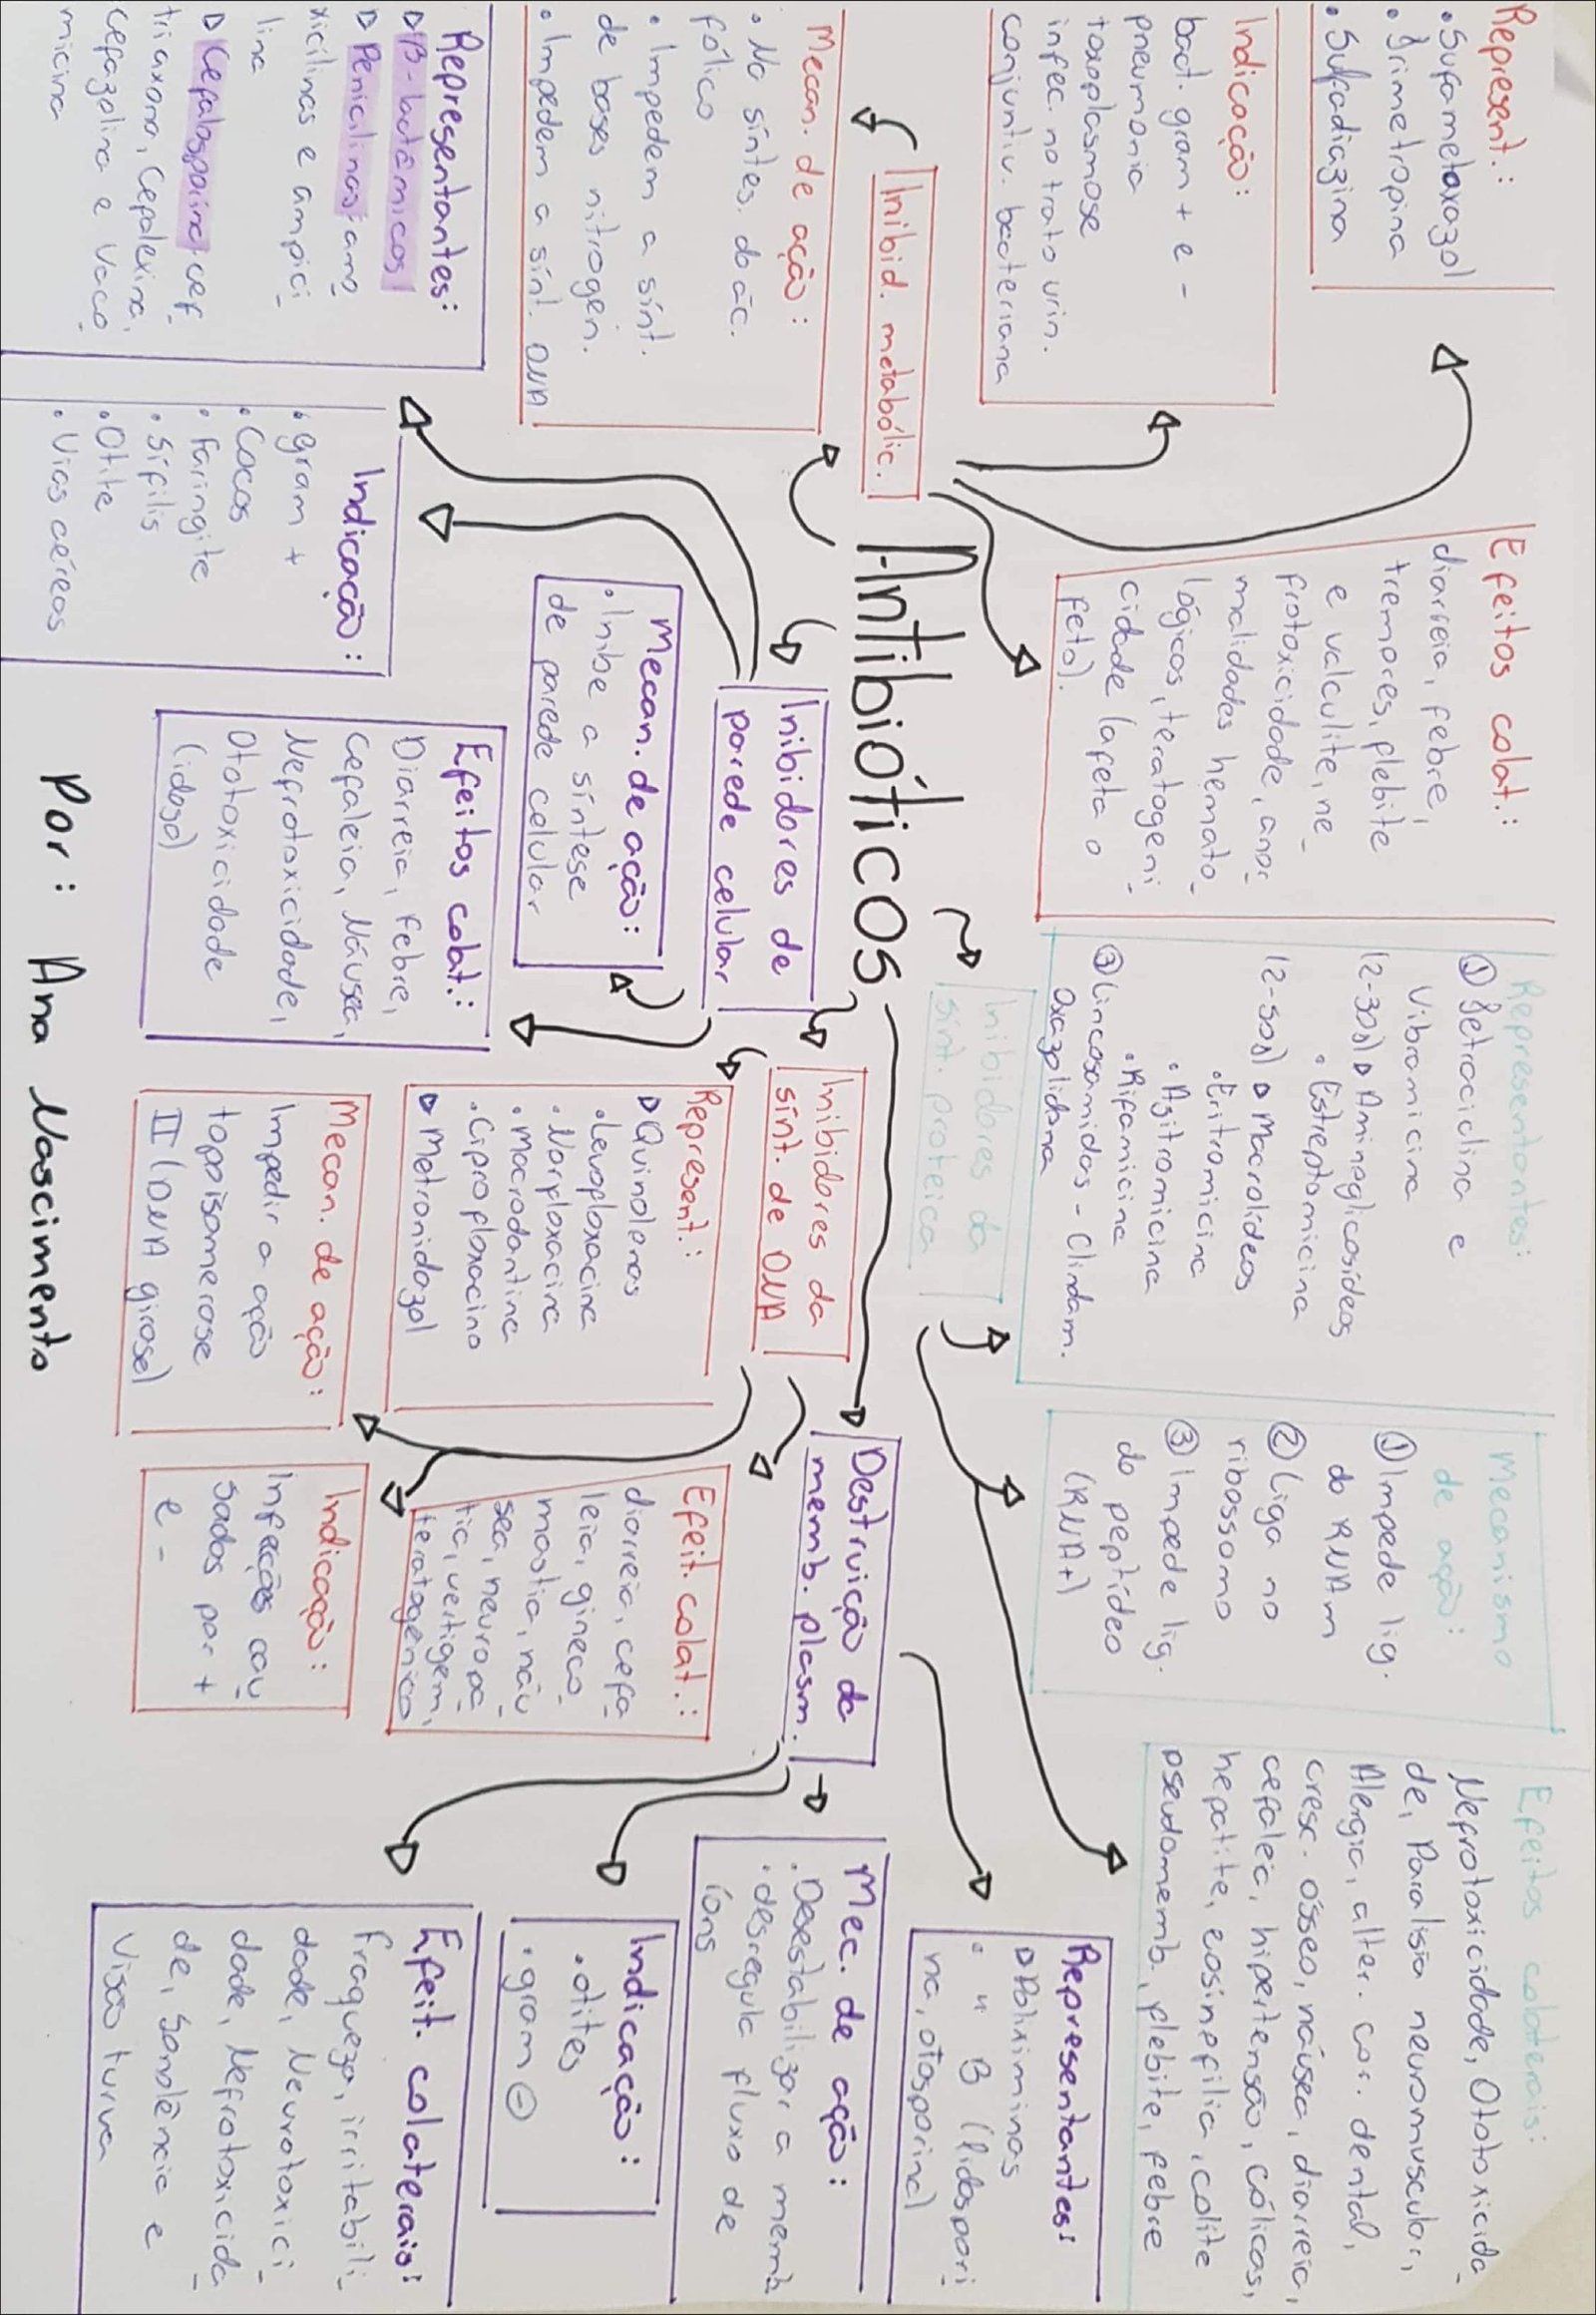 Represent.:
• Sufametoxazol
• Trimetropina
• Sulfadiazina
Indicação:
bact. gram + e -
pneumonia
toxoplasmose
infec. no trato urin.
conjuntiv. bacteriana
Inibid. metabólic.
Mecan. de ação:
• Na síntes. do ác.
fólico
• Impedem a sínt.
de bases nitrogen.
• Impedem a sínt. DNA
Efeitos colat.:
diarreia, febre,
tremores, flebite
e valculite, ne-
frotoxicidade, anor
malidades hemato-
lógicos, teratogeni
cidade (afeta o
feto).
Antibióticos
Inibidores da
sínt. proteica
Representantes:
① Tetraciclina e
Vibramicina
(2-30s) ▷ Aminoglicosídeos
• Estreptomicina
(2-50s) ▷ Macrolídeos
• Eritromicina
• Azitromicina
• Rifamicina
③ Lincosamidas - Clindam.
Oxazolidona
Mecanismo
de ação:
① Impede lig.
do RNAm
② Liga no
ribossomo
③ Impede lig.
do peptídeo
(RNAt)
Efeitos colaterais:
Nefrotoxicidade, Ototoxicida-
de, Paralisia neuromuscular,
Alergia, alter. cor. dental,
cresc. ósseo, náusea, diarreia,
cefaleia, hipertensão, cólicas,
hepatite, eosinofilia, colite
pseudomemb., flebite, febre
Inibidores de
parede celular
Representantes:
▷ B-lactâmicos
▷ Penicilinas: amo
xicilinas e ampici
lina
▷ Cefalosporina: cef
triaxona, Cefalexina,
Cefazolina e Vaco
micina
Indicação:
• gram +
• Cocos
• Faringite
• Sífilis
• Otite
• Vias aéreas
Mecan. de ação:
• Inibe a síntese
de parede celular
Efeitos colat.:
Diarreia, Febre,
Cefaleia, Náusea,
Nefrotoxicidade,
Ototoxicidade
(idoso)
Inibidores da
sínt. de DNA
Represent.:
▷ Quinolenas
• Levofloxacina
• Norfloxacina
• Macrodantina
• Ciprofloxacino
▷ Metronidazol
Mecan. de ação:
Impedir a ação
topoisomerase
II (DNA girase)
Efeit. colat.:
diarreia, cefa
leia, gineco
mastia, náu
sea, neuropa
tia, vertigem,
teratogênico
Indicação:
Infecções cau
sadas por +
e -
Destruição da
memb. plasm.
Representantes:
▷ Poliximinas
• " B (lidospori
na, otosporina)
Mec. de ação:
• Desestabilizar a memb
• desregula fluxo de
íons
Indicação:
• otites
• gram ⊖
Efeit. colaterais:
Fraqueza, irritabili-
dade, Neurotoxici
dade, Nefrotoxicida
de, Sonolência e
Visão turva
Por: Ana Nascimento